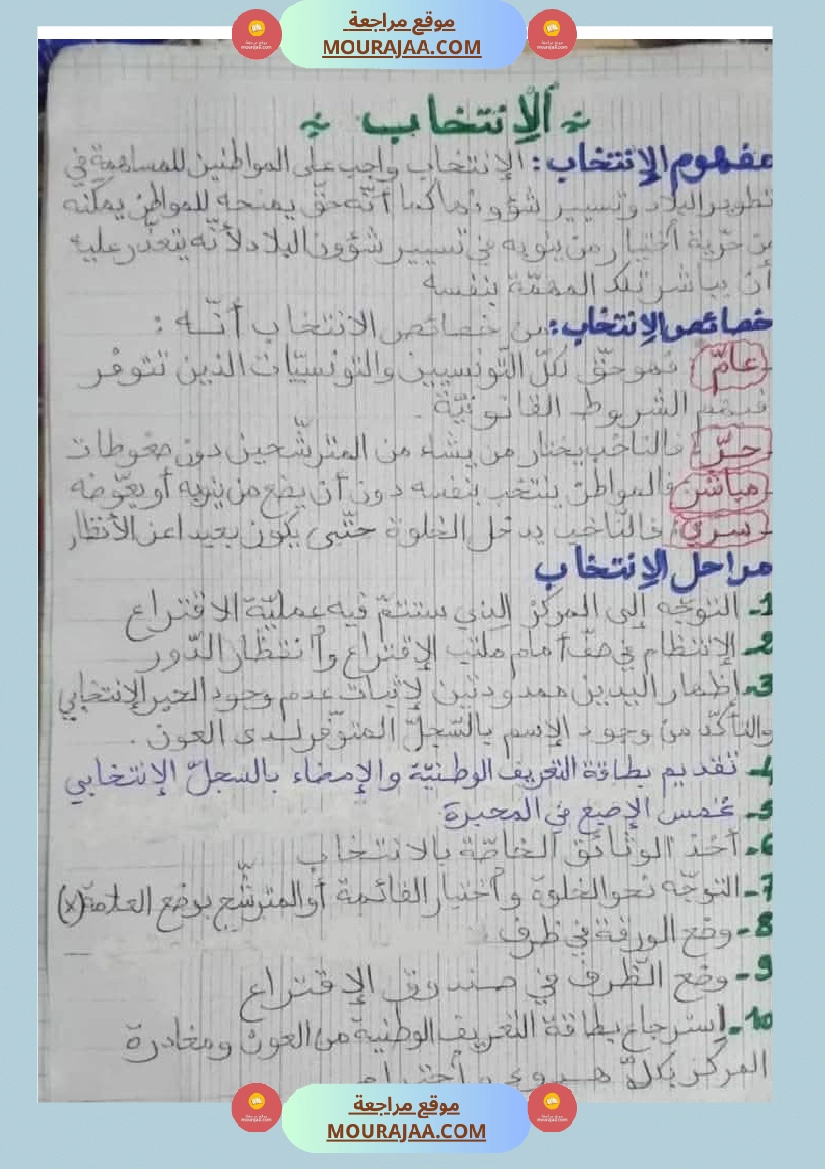 موقع مراجعة
MOURAJAA.COM
الإنتخاب
مفهوم الإنتخاب: الإنتخاب واجب على المواطنين للمساهمة في
تطوير البلاد وتسيير شؤونها كما أنّه حقّ يمنحه للمواطن يمكّنه
من حرّية أختيار من ينوبه في تسيير شؤون البلاد لأنّه يتعذّر عليه
أن يباشر تلك المهمّة بنفسه
خصائص الإنتخاب: من خصائص الانتخاب أنّه :
- عامّ فهو حقّ لكلّ التّونسيين والتّونسيّات الذين تتوفر
فيهم الشروط القانونيّة.
- حرّ فالناخب يختار من يشاء من المترشّحين دون ضغوطات
- مباشر فالمواطن ينتخب بنفسه دون أن يضع من ينوبه أو يعوّضه
- سرّي فالنّاخب يدخل الخلوة حتّى يكون بعيدا عن الأنظار
مراحل الإنتخاب
1- التوجّه إلى المركز الذي ستتمّ فيه عمليّة الاقتراع
2- الإنتظام في صفّ أمام مكتب الإقتراع وأنتظار الدّور
3- إظهار اليدين ممدودتين لإثبات عدم وجود الحبر الإنتخابي
والتأكّد من وجود الإسم بالسّجلّ المتوفّر لدى العون .
4- تقديم بطاقة التعريف الوطنيّة والإمضاء بالسجلّ الإنتخابي
5- غمس الإصبع في المحبرة
6- أخذ الوثائق الخاصّة بالانتخاب
7- التوجّه نحو الخلوة وأختيار القائمة أو المترشّح بوضع العلامة (x)
8- وضع الورقة في ظرف
9- وضع الظّرف في صندوق الإقتراع
10- إسترجاع بطاقة التعريف الوطنية من العون ومغادرة
المركز بكلّ هدوء وأحترام
موقع مراجعة
MOURAJAA.COM